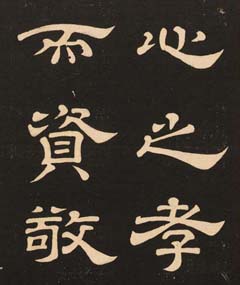 心之孝
而資敬